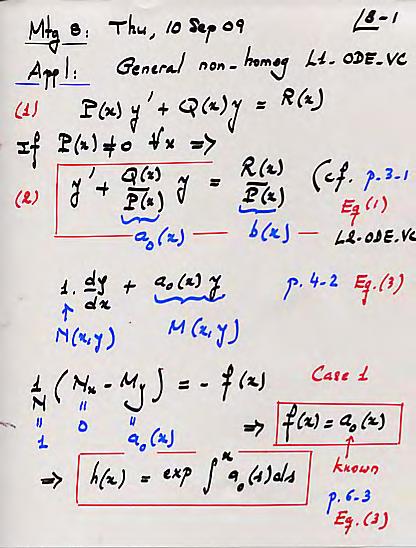 Mtg 8: Thu, 10 Sep 09
L8-1
Appl: General non-homog L1-ODE-VC
(1) P(x) y' + Q(x) y = R(x)
If P(x) ≠ 0 ∀x =>
(2) y' + Q(x)/P(x) y = R(x)/P(x) (cf. p.3-1
Eq(1)
a₀(x) b(x) L2-ODE-VC
1. dy/dx + a₀(x) y p.4-2 Eq.(3)
N(x,y) M(x,y)
1/N (Nx - My) = - f(x) Case 1
1 0 a₀(x) => f(x) = a₀(x)
known
=> h(x) = exp ∫^x a₀(s) ds
p.6-3
Eq.(3)